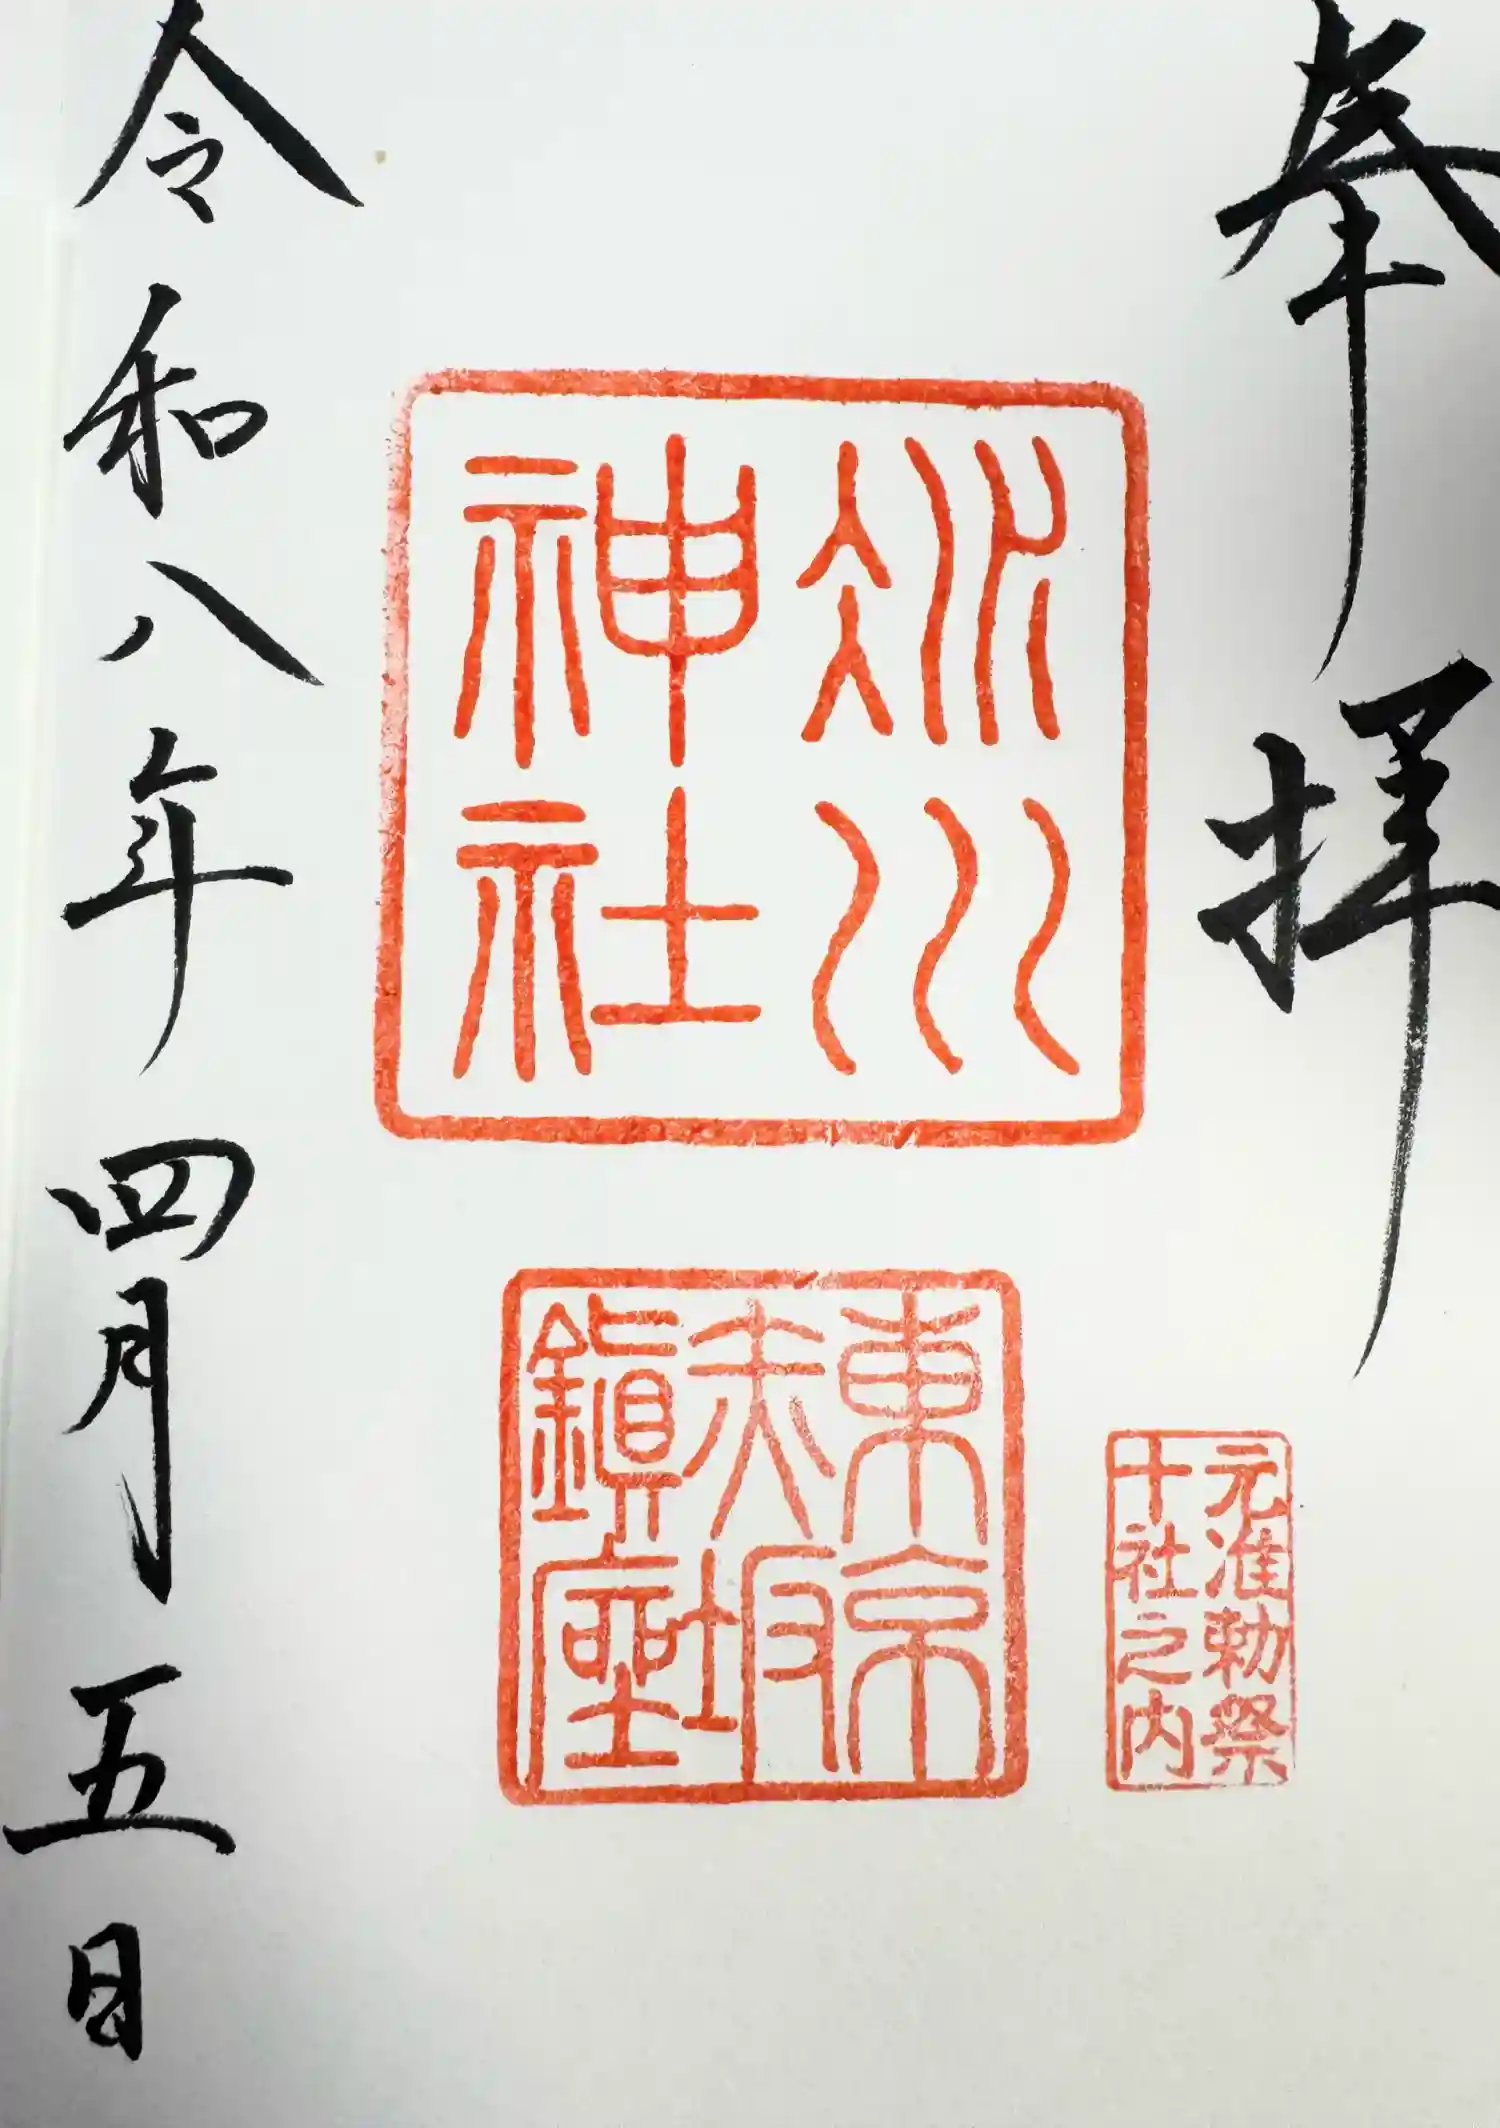 奉拝
氷川
神社
東京
赤坂
鎮座
元准勅祭
十社之内
令和八年四月五日